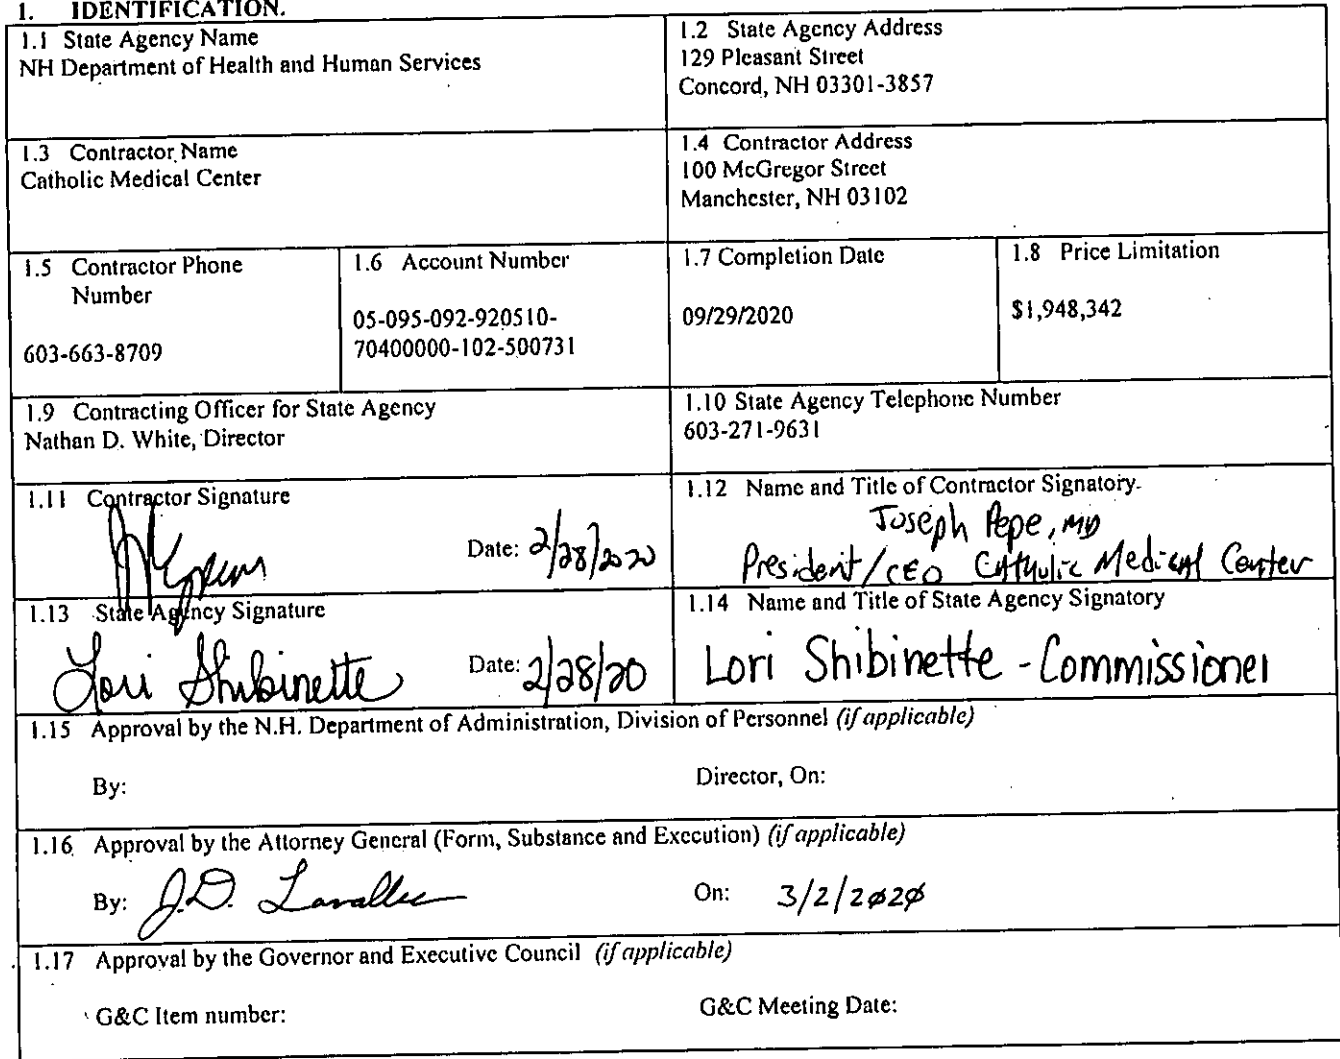 1. IDENTIFICATION.
1.1 State Agency Name
NH Department of Health and Human Services
1.2 State Agency Address
129 Pleasant Street
Concord, NH 03301-3857
1.3 Contractor Name
Catholic Medical Center
1.4 Contractor Address
100 McGregor Street
Manchester, NH 03102
1.5 Contractor Phone
Number
603-663-8709
1.6 Account Number
05-095-092-920510-
70400000-102-500731
1.7 Completion Date
09/29/2020
1.8 Price Limitation
$1,948,342
1.9 Contracting Officer for State Agency
Nathan D. White, Director
1.10 State Agency Telephone Number
603-271-9631
1.11 Contractor Signature
Date: 2/28/2020
1.12 Name and Title of Contractor Signatory
Joseph Pepe, MD
President/CEO Catholic Medical Center
1.13 State Agency Signature
Lori Shibinette Date: 2/28/20
1.14 Name and Title of State Agency Signatory
Lori Shibinette - Commissioner
1.15 Approval by the N.H. Department of Administration, Division of Personnel (if applicable)
By: Director, On:
1.16 Approval by the Attorney General (Form, Substance and Execution) (if applicable)
By: J.D. Lavallee On: 3/2/2020
1.17 Approval by the Governor and Executive Council (if applicable)
G&C Item number: G&C Meeting Date: